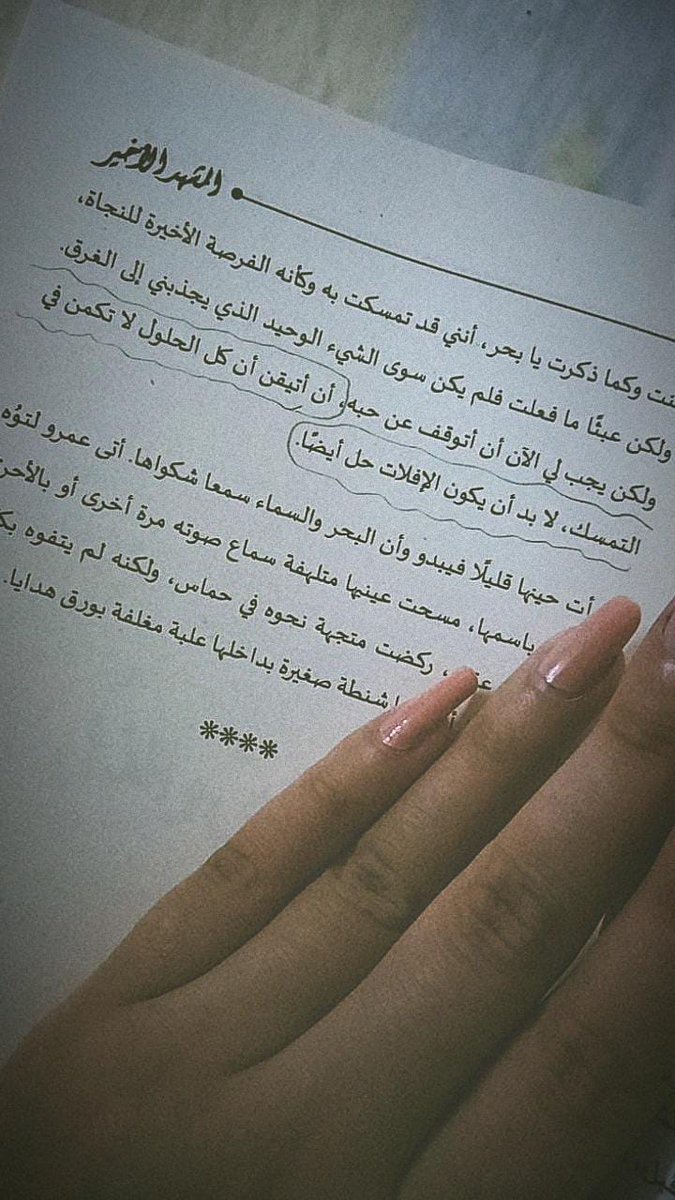 المشهد الأخير
وكما ذكرت يا بحر، أنني قد تمسكت به وكأنه الفرصة الأخيرة للنجاة،
ولكن عبثًا ما فعلت فلم يكن سوى الشيء الوحيد الذي يجذبني إلى الغرق.
ولكن يجب لي الآن أن أتوقف عن حبه، أن أتيقن أن كل الحلول لا تكمن في
التمسك، لا بد أن يكون الإفلات حل أيضًا.
أت حينها قليلًا فيبدو وأن البحر والسماء سمعا شكواها. أتى عمرو لتوُه
باسمها، مسحت عينها متلهفة سماع صوته مرة أخرى أو بالأحر
ركضت متجهة نحوه في حماس، ولكنه لم يتفوه بك
شنطة صغيرة بداخلها علبة مغلفة بورق هدايا.
****